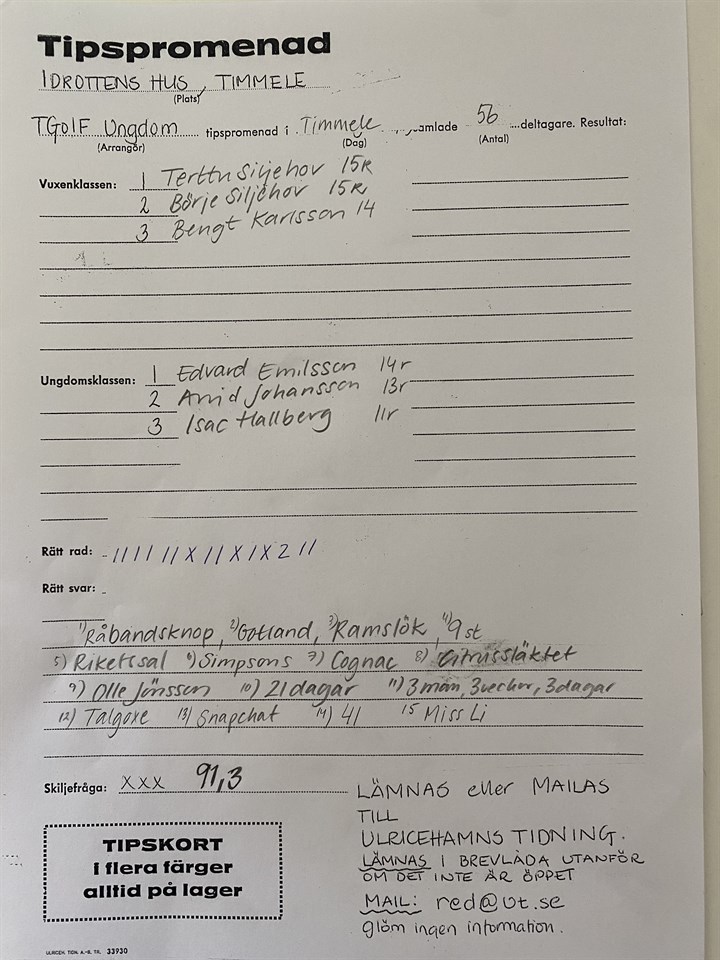 Tipspromenad
IDROTTENS HUS, TIMMELE
(Plats)
TGOIF Ungdom tipspromenad i Timmele samlade 56 deltagare. Resultat:
(Arrangör) (Dag) (Antal)
Vuxenklassen: 1 Terttu Siljehov 15R
2 Börje Siljehov 15R
3 Bengt Karlsson 14
Ungdomsklassen: 1 Edvard Emilsson 14r
2 Arvid Johansson 13r
3 Isac Hallberg 11r
Rätt rad: 1 1 1 1 1 1 X 1 1 X 1 X 2 1 1
Rätt svar:
1) Råbandsknop, 2) Gotland, 3) Ramslök, 4) 9 st
5) Rikettsal 6) Simpsons 7) Cognac 8) Citrussläktet
9) Olle Jönsson 10) 21 dagar 11) 3 mån, 3 veckor, 3 dagar
12) Talgoxe 13) Snapchat 14) 41 15 Miss Li
Skiljefråga: XXX 91,3
LÄMNAS eller MAILAS
TILL
ULRICEHAMNS TIDNING.
LÄMNAS I BREVLÅDA UTANFÖR
OM DET INTE ÄR ÖPPET
MAIL: red@ut.se
glöm ingen information.
TIPSKORT
i flera färger
alltid på lager
ULRICEH. TIDN. A.-B. TR. 33930